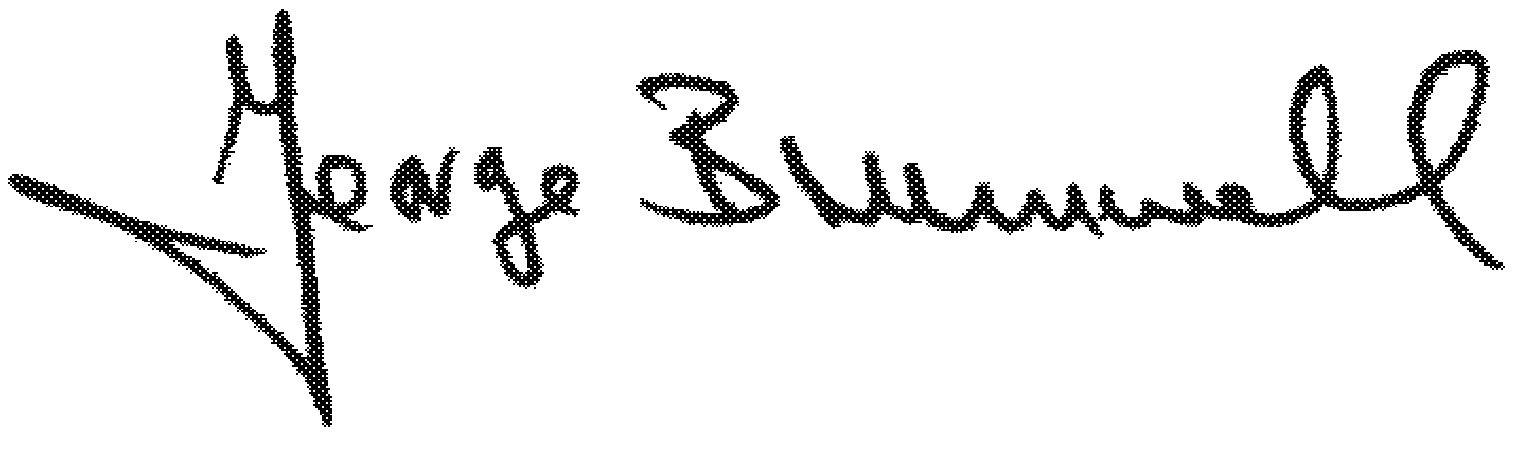 George Brummell